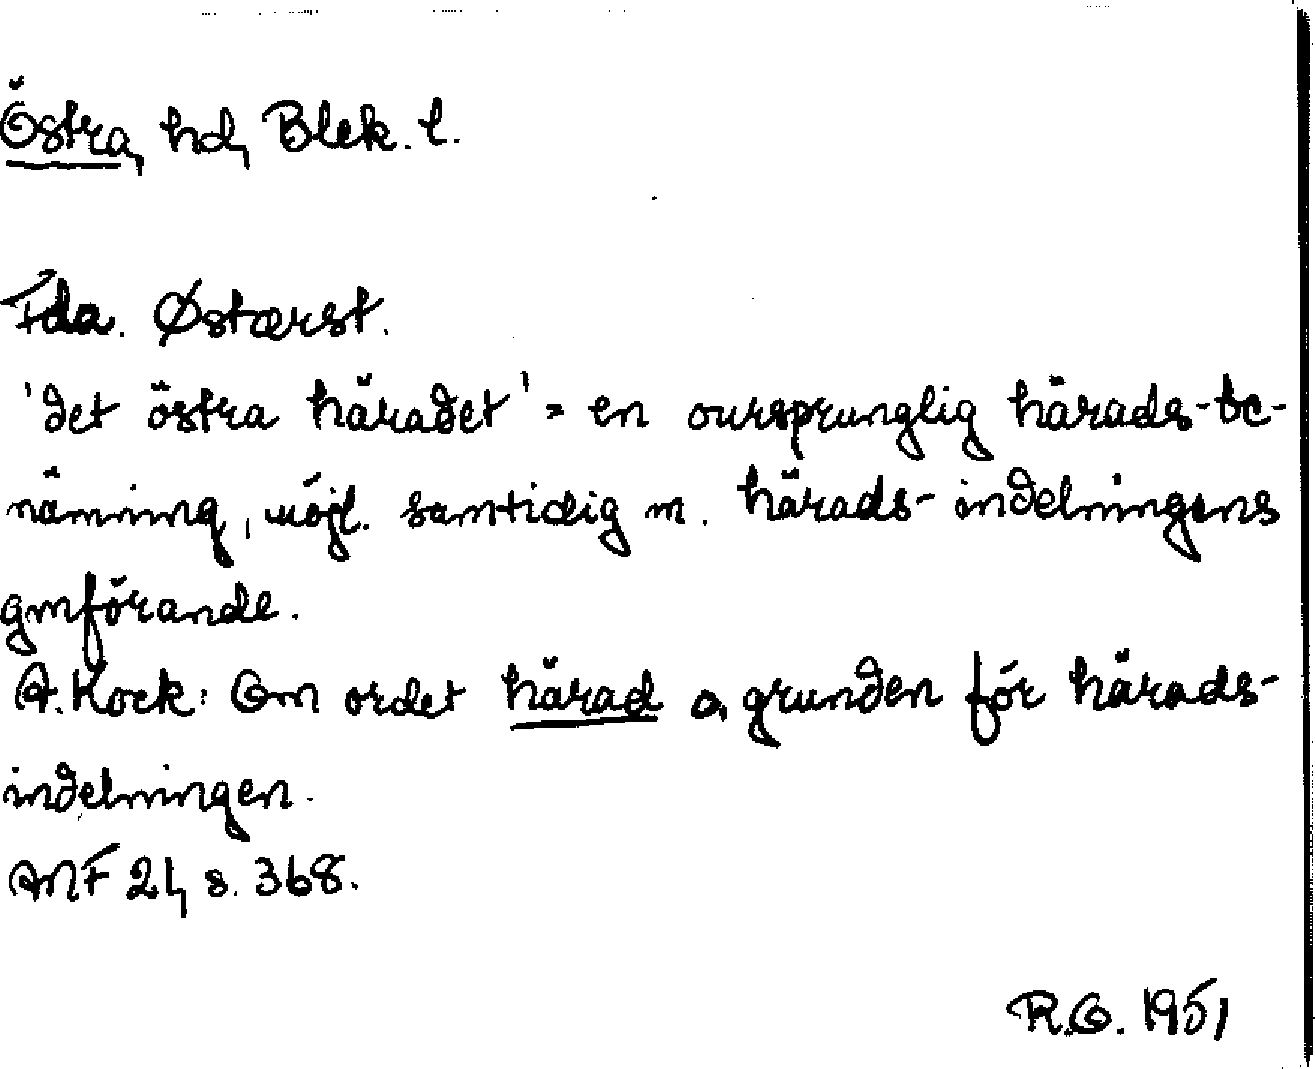 Östra, hd, Blek. l.
Fda. Østærst.
'det östra häradet' = en oursprunglig härads-be-
nämning, möjl. samtidig m. härads-indelningens
gmförande.
A. Kock: Om ordet härad o, grunden för härads-
indelningen.
ANF 21, s. 368.
R.G. 1951